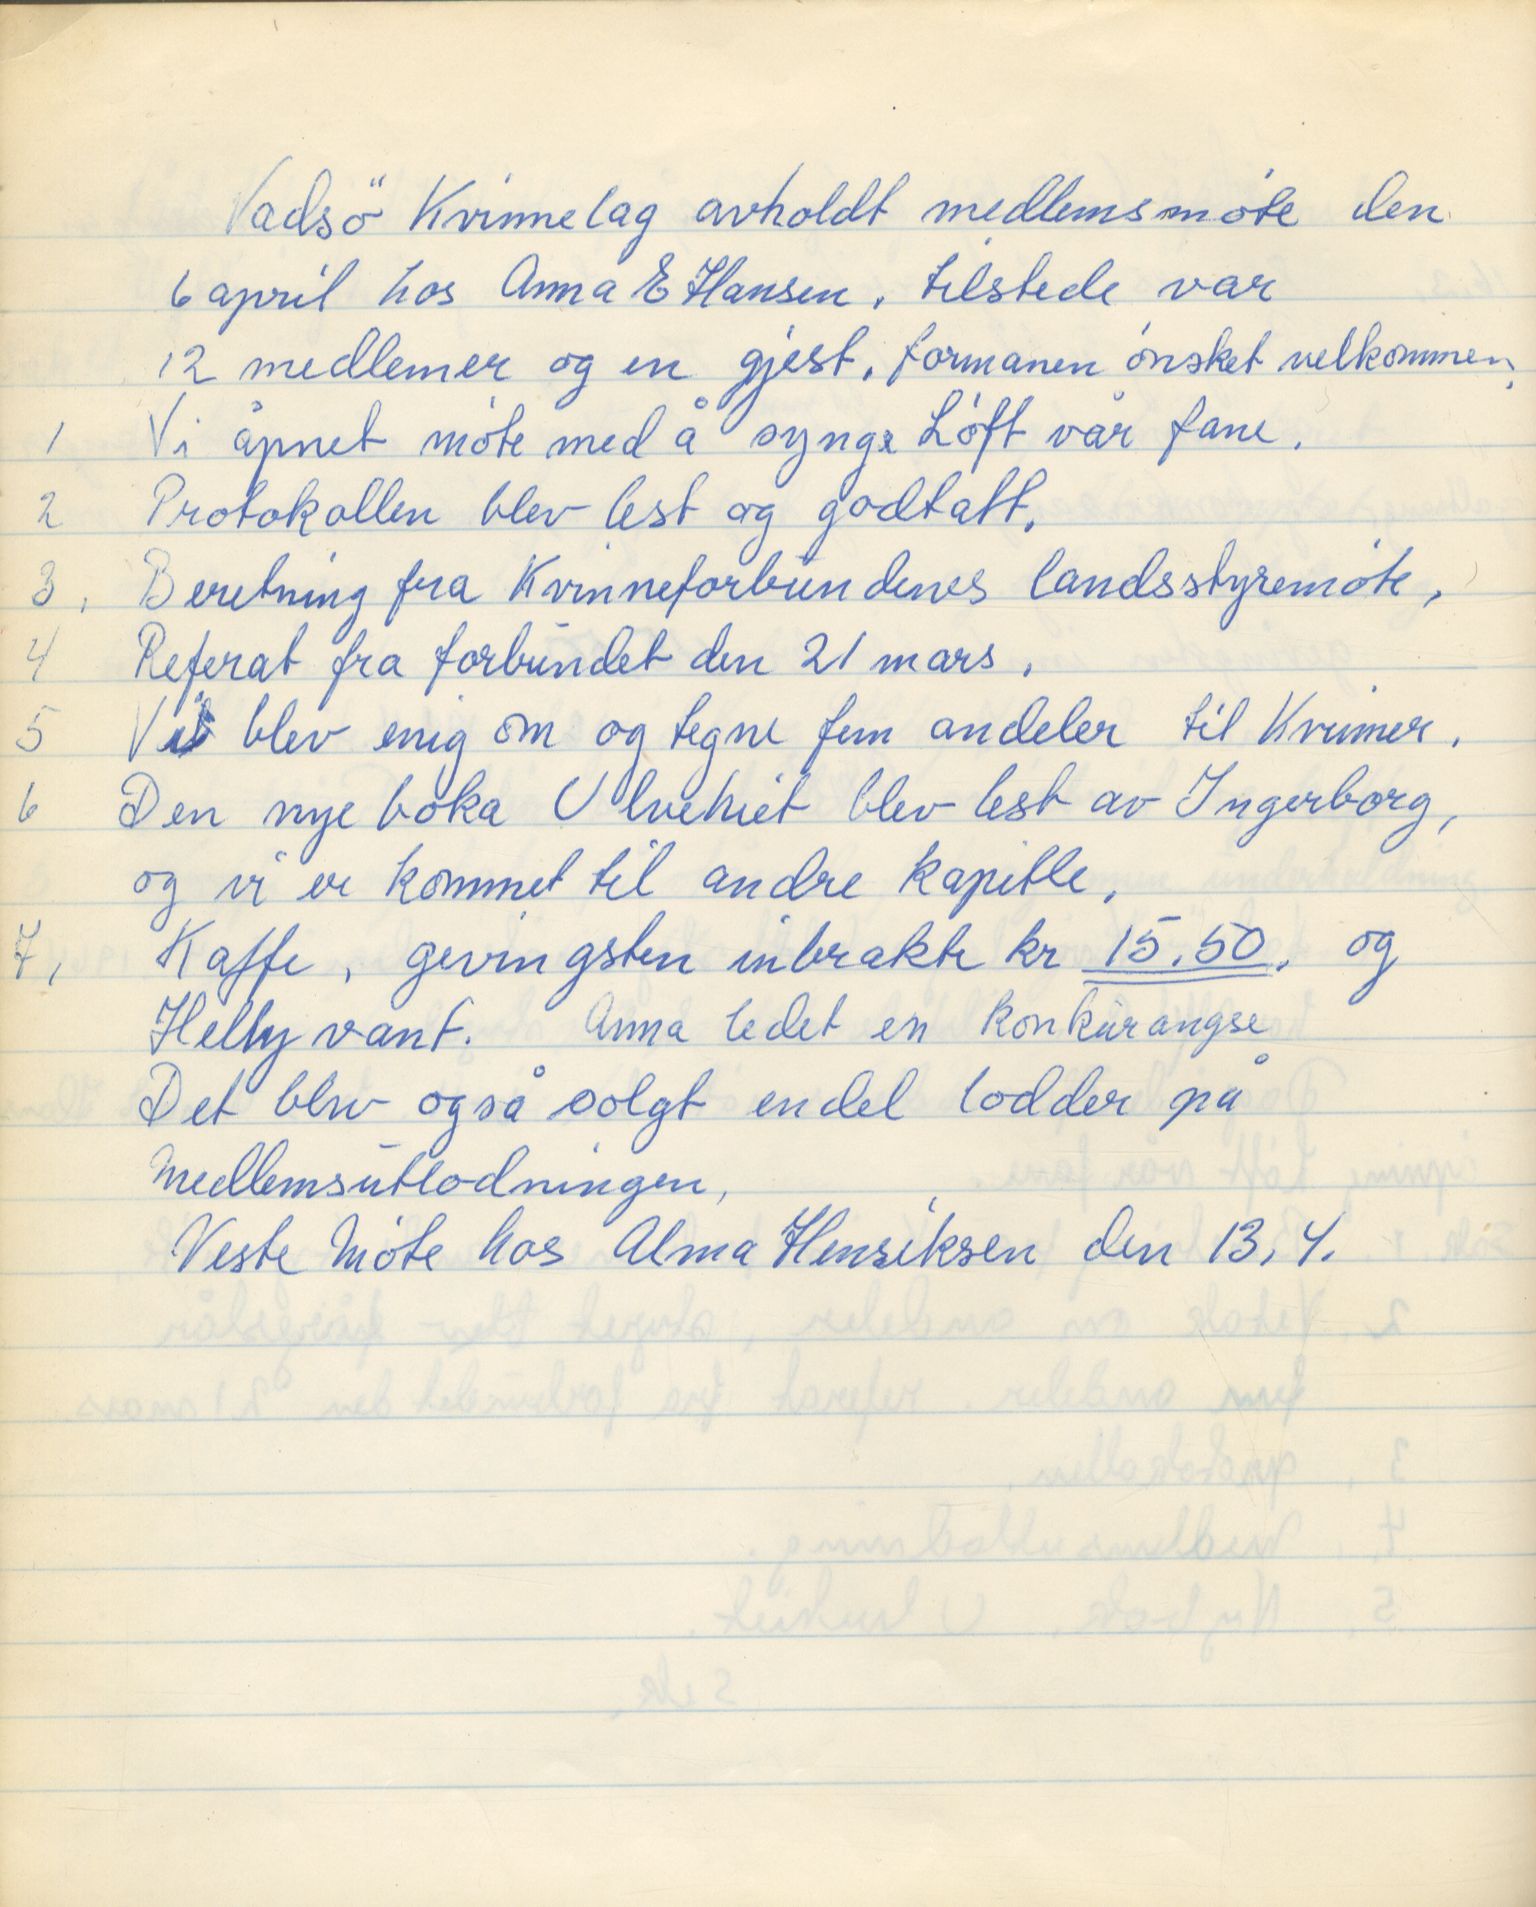 Vadsö Kvinnelag avholdt medlemsmöte den
6 april hos Anna E Hansen. tilstede var
12 medlemer og en gjest. formanen ónsket velkommen.
1 Vi åpnet móte med å synge Lóft vår fane.
2 Protokollen blev lest og godtatt.
3. Beretning fra Kvinneforbundenes landsstyremóte,
4 Referat fra forbundet den 21 mars.
5 Vi blev enig om og tegne fem andeler til Kvinner.
6 Den nye boka Ulvehiet blev lest av Ingerborg,
og vi er kommet til andre kapitle,
7, Kaffe, gevingsten inbrakte kr 15.50. og
Helly vant. Anna ledet en konkurangse
Det blev også solgt endel lodder på
medlemsutlodningen,
Neste Móte hos Alma Henriksen den 13, 4.